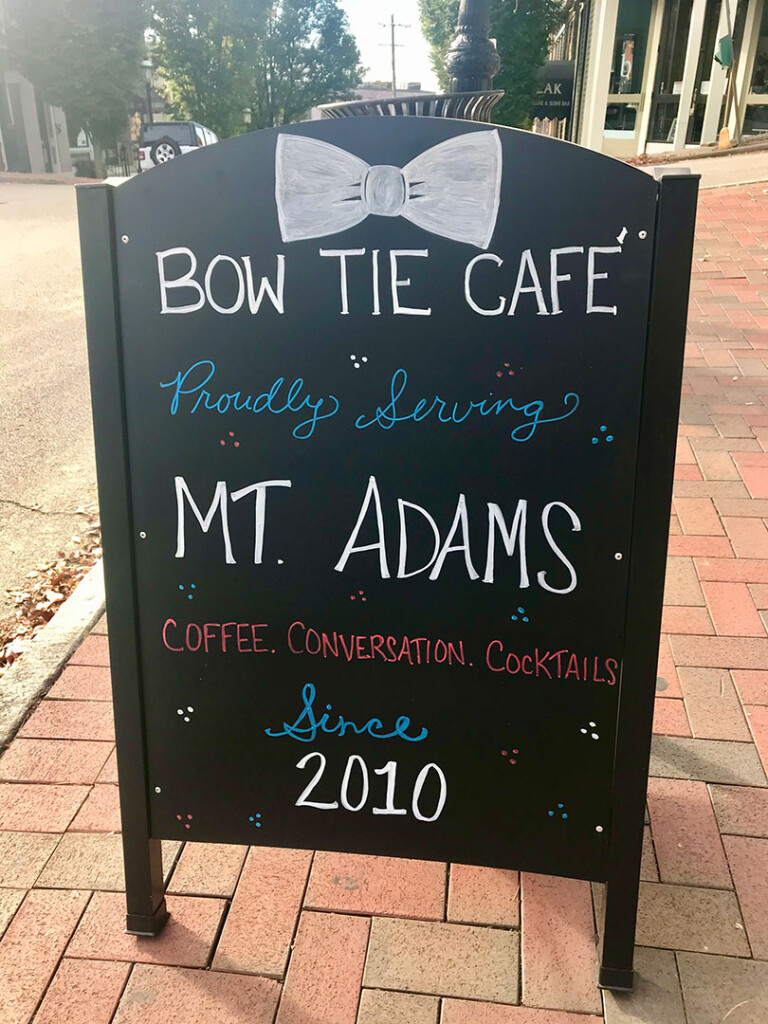 BOW TIE CAFÉ
Proudly Serving
MT. ADAMS
COFFEE. CONVERSATION. COCKTAILS
Since
2010
LAK